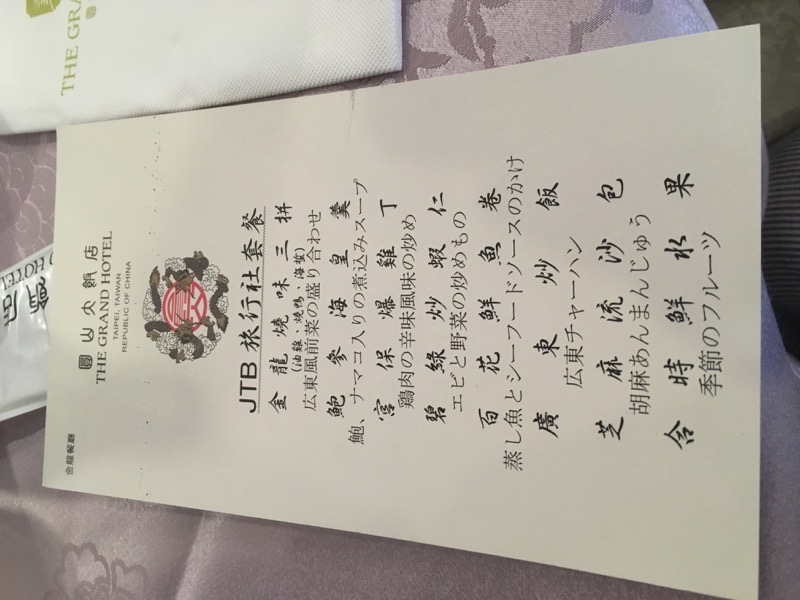 金龍餐廳
圓山大飯店
THE GRAND HOTEL
TAIPEI, TAIWAN
REPUBLIC OF CHINA
JTB 旅行社套餐
金龍燒味三拼
(油雞 燒鴨 海蜇)
広東風前菜の盛り合わせ
鮑參海皇羹
鮑、ナマコ入りの煮込みスープ
宮保爆雞丁
鶏肉の辛味風味の炒め
碧綠炒蝦仁
エビと野菜の炒めもの
百花鮮魚卷
蒸し魚とシーフードソースのかけ
廣東炒飯
広東チャーハン
芝麻流沙包
胡麻あんまんじゅう
合時鮮水果
季節のフルーツ
THE GRA